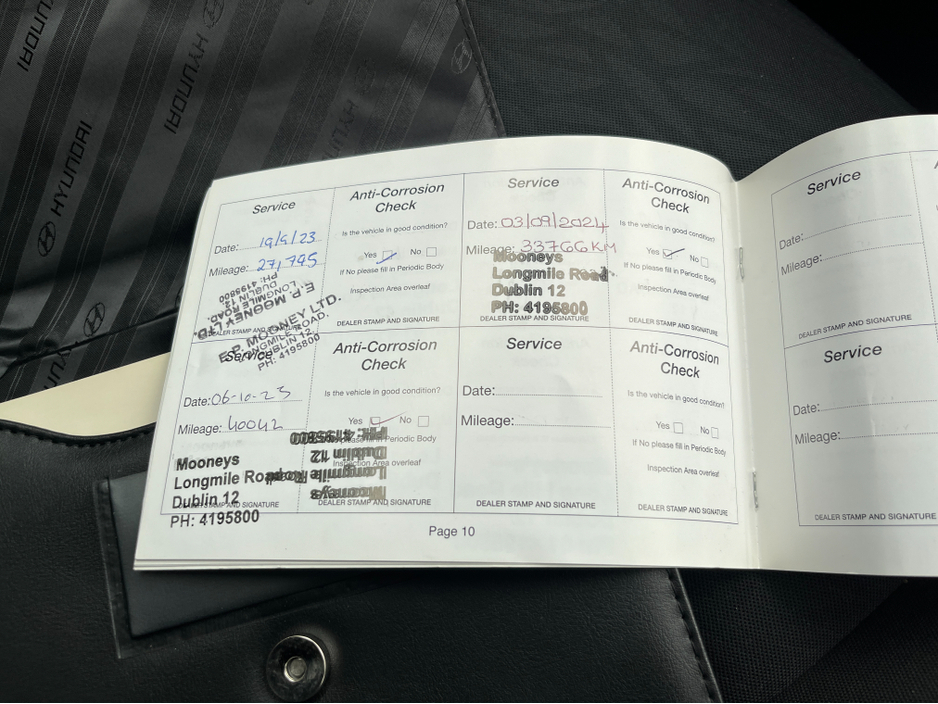 HYUNDAI
HYUNDAI
HYUNDAI
HYUNDAI
Service
Date: 19/9/23
Mileage: 27,795
E.P. MOONEY LTD.
LONGMILE ROAD,
DUBLIN 12
PH: 4195800
DEALER STAMP AND SIGNATURE
Anti-Corrosion
Check
Is the vehicle in good condition?
Yes No
If No please fill in Periodic Body
Inspection Area overleaf
E.P. MOONEY LTD.
LONGMILE ROAD,
DUBLIN 12
PH: 4195800
DEALER STAMP AND SIGNATURE
Service
Date: 03/09/2024
Mileage: 33766 KM
Mooneys
Longmile Road
Dublin 12
PH: 4195800
DEALER STAMP AND SIGNATURE
Anti-Corrosion
Check
Is the vehicle in good condition?
Yes No
If No please fill in Periodic Body
Inspection Area overleaf
DEALER STAMP AND SIGNATURE
Service
Date: 06-10-23
Mileage: 40042
Mooneys
Longmile Road
Dublin 12
PH: 4195800
DEALER STAMP AND SIGNATURE
Anti-Corrosion
Check
Is the vehicle in good condition?
Yes No
If No please fill in Periodic Body
Inspection Area overleaf
Mooneys
Longmile Road
Dublin 12
PH: 4195800
DEALER STAMP AND SIGNATURE
Service
Date:
Mileage:
DEALER STAMP AND SIGNATURE
Anti-Corrosion
Check
Is the vehicle in good condition?
Yes No
If No please fill in Periodic Body
Inspection Area overleaf
DEALER STAMP AND SIGNATURE
Page 10
Service
Date:
Mileage:
DEALER STAMP AND SIGNATURE
Service
Date:
Mileage:
DEALER STAMP AND SIGNATURE